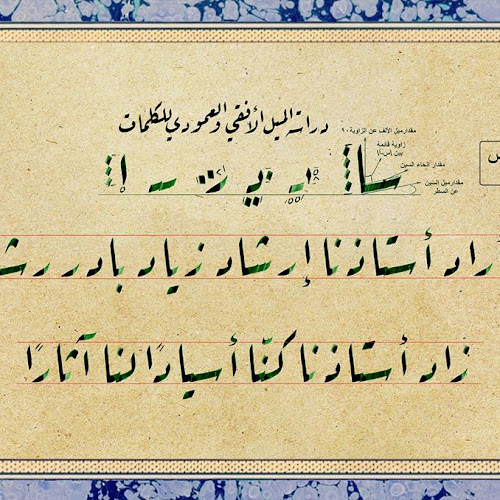 دراسة الميل الأفقي والعمودي للكلمات
مقدار ميل الألف عن الزاوية ٩٠
زاوية قائمة
بين (س-أ)
مقدار انحناء السين
مقدار ميل السين
عن السطر
زاد أستاذنا إرشاد زياد بادر رشـ
زاد أستاذنا كنّا أسيادًا لنا آثارًا